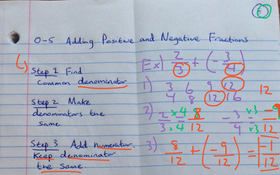 0-5 Adding Positive and Negative Fractions
Step 1 Find
common denominator
Step 2 Make
denominators the
same
Step 3 Add numerator
Keep denominator
the same
Ex) 2/3 + (-3/4)
1) 3 6 9 12
4 8 12 16 12
2) 2/3 x4/x4 = 8/12 -3/4 x3/x3 = -9/12
3) 8/12 + (-9/12) = -1/12